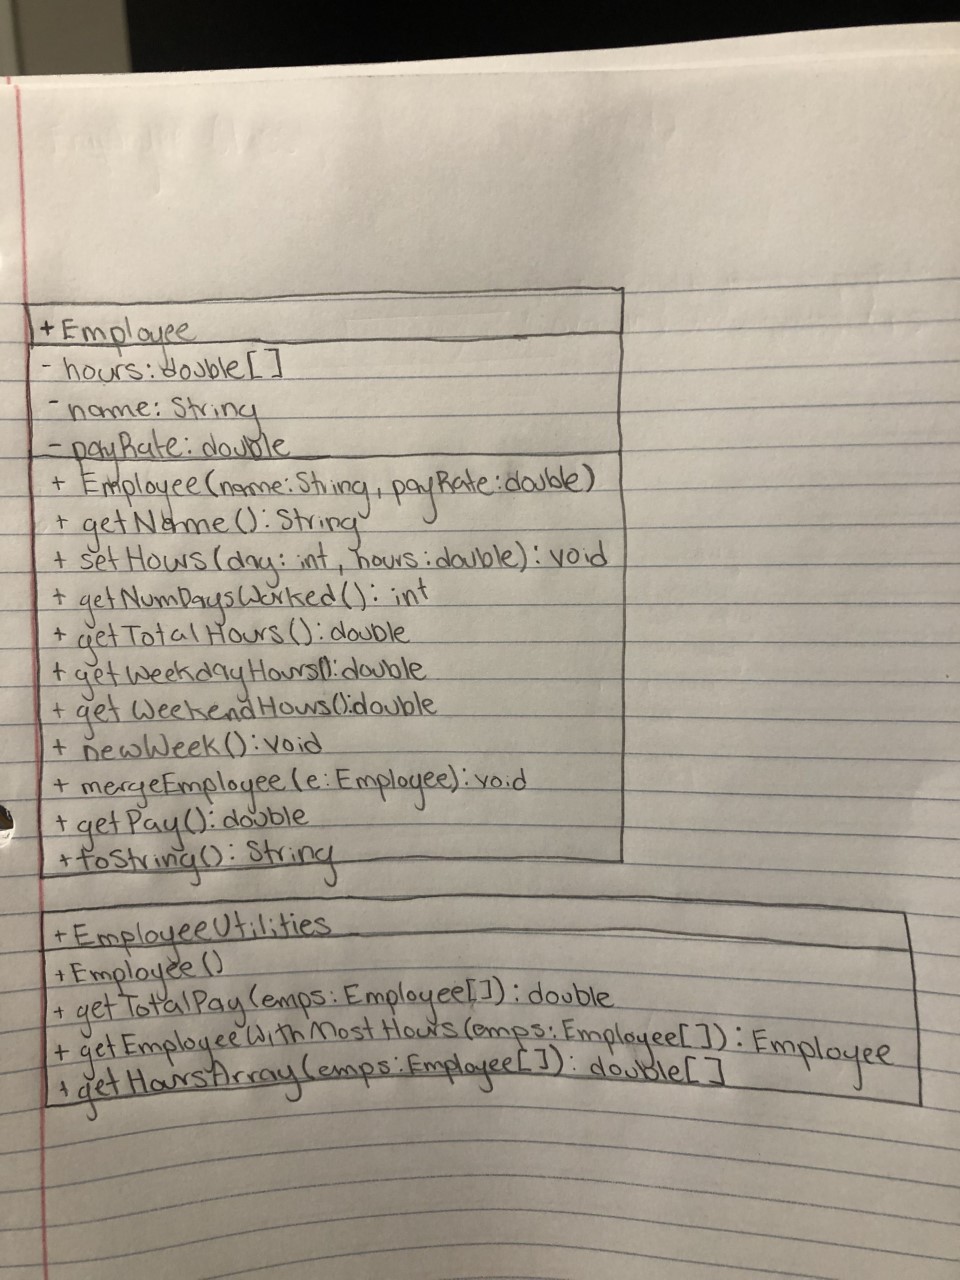 + Employee
- hours: double[]
- name: String
- payRate: double
+ Employee(name: String, payRate: double)
+ getName(): String
+ setHours(day: int, hours: double): void
+ getNumDaysWorked(): int
+ getTotalHours(): double
+ getWeekdayHours(): double
+ getWeekendHours(): double
+ newWeek(): void
+ mergeEmployee(e: Employee): void
+ getPay(): double
+ toString(): String
+ EmployeeUtilities
+ Employee()
+ getTotalPay(emps: Employee[]): double
+ getEmployeeWithMostHours(emps: Employee[]): Employee
+ getHoursArray(emps: Employee[]): double[]